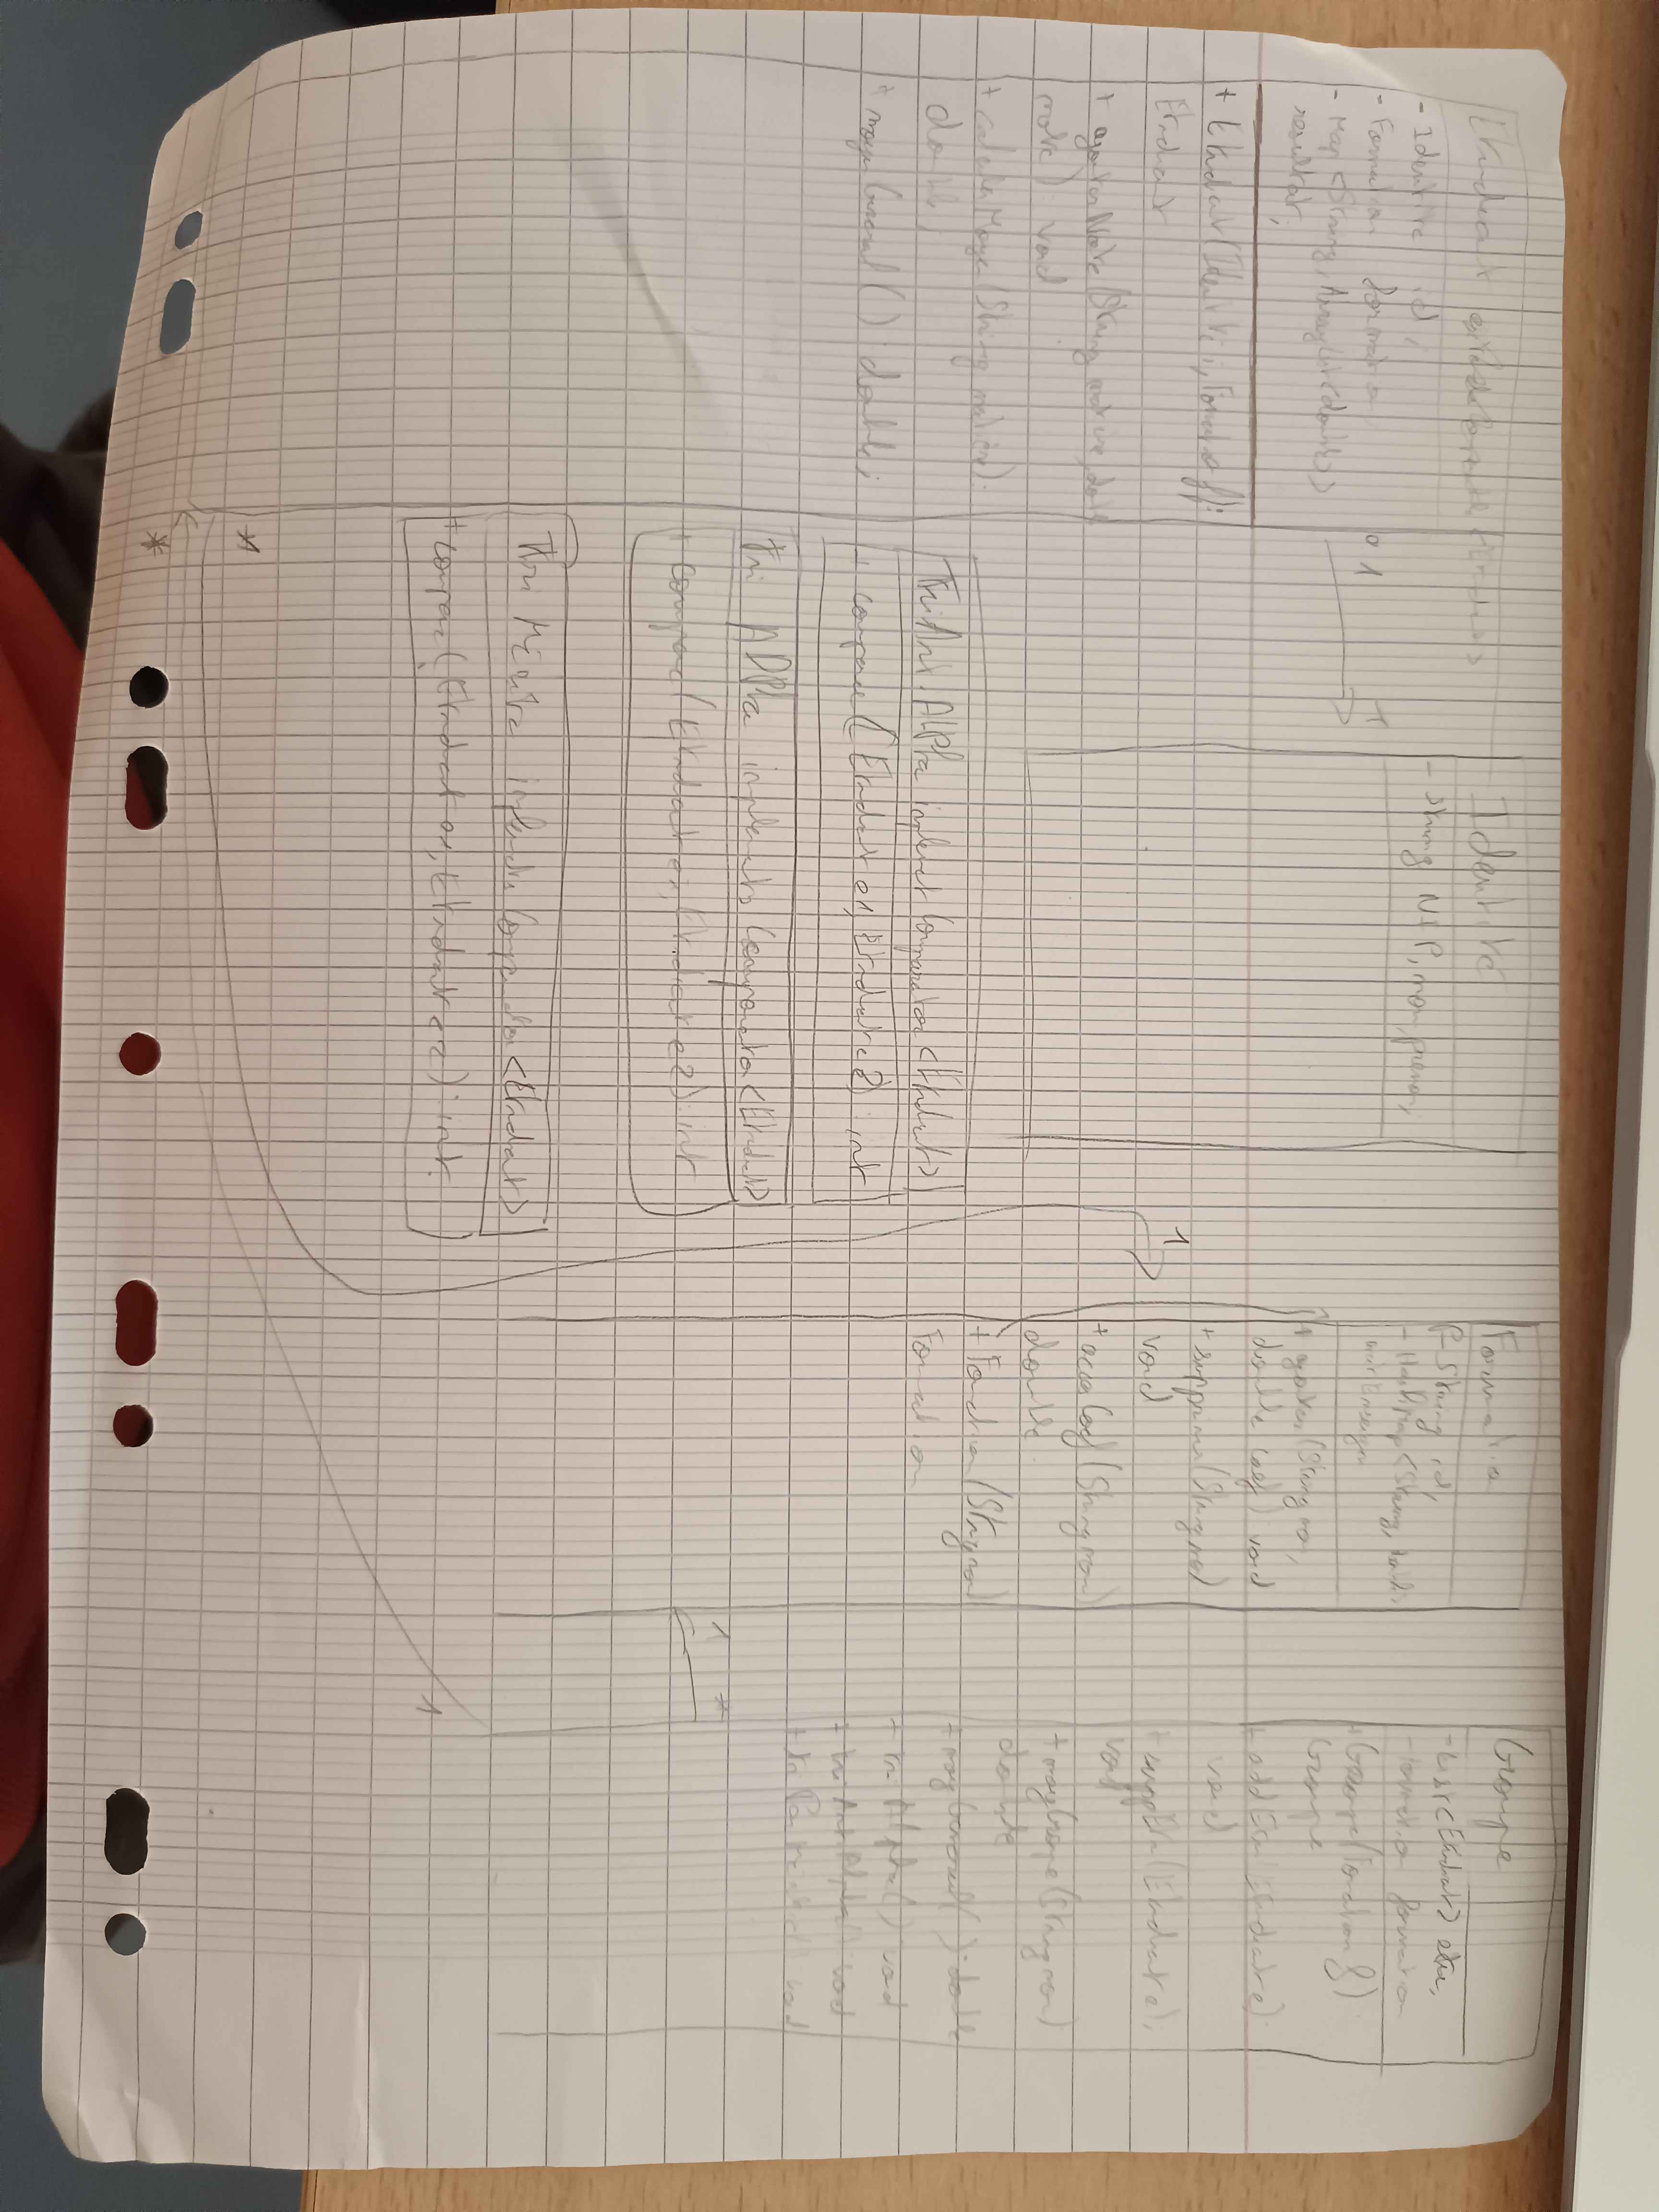 Etudiant
- Identite id;
- Formation formation,
- Map<String, ArrayList<double>>
resultat;
+ Etudiant(Identite i, Formation f):
Etudiant
+ ajouterNote(String matiere, double
note): void
+ calculerMoye(String matiere):
double;
+ moyeGeneral(): double;
0 1
1
Identite
- String NIP, nom, prenom;
TriAntiAlpha implement Comparator<Etudiant>
+ compare(Etudiant e1, Etudiant e2): int
Tri Alpha implements Comparator<Etudiant>
+ compare(Etudiant e1, Etudiant e2): int
Tri Mérite implements Comparator<Etudiant>
+ compare(Etudiant e1, Etudiant e2): int
*
*
1
Formation
- String id;
- HashMap<String, double>
+ ajouter(String nom,
double coef) void
+ supprimer(String nom)
void
+ accesCoef(String nom)
double
+ Formation(String nom)
Formation
1
*
1
Groupe
- List<Etudiant> etu;
- Formation formation
+ Groupe(Formation f)
Groupe
+ addEtu(Etudiant e):
void
+ suppEtu(Etudiant e);
void
+ moyGroupe(String nom)
double
+ moyGeneral(): double
+ triAlpha() void
+ triAntiAlpha(): void
+ triParMerite(): void